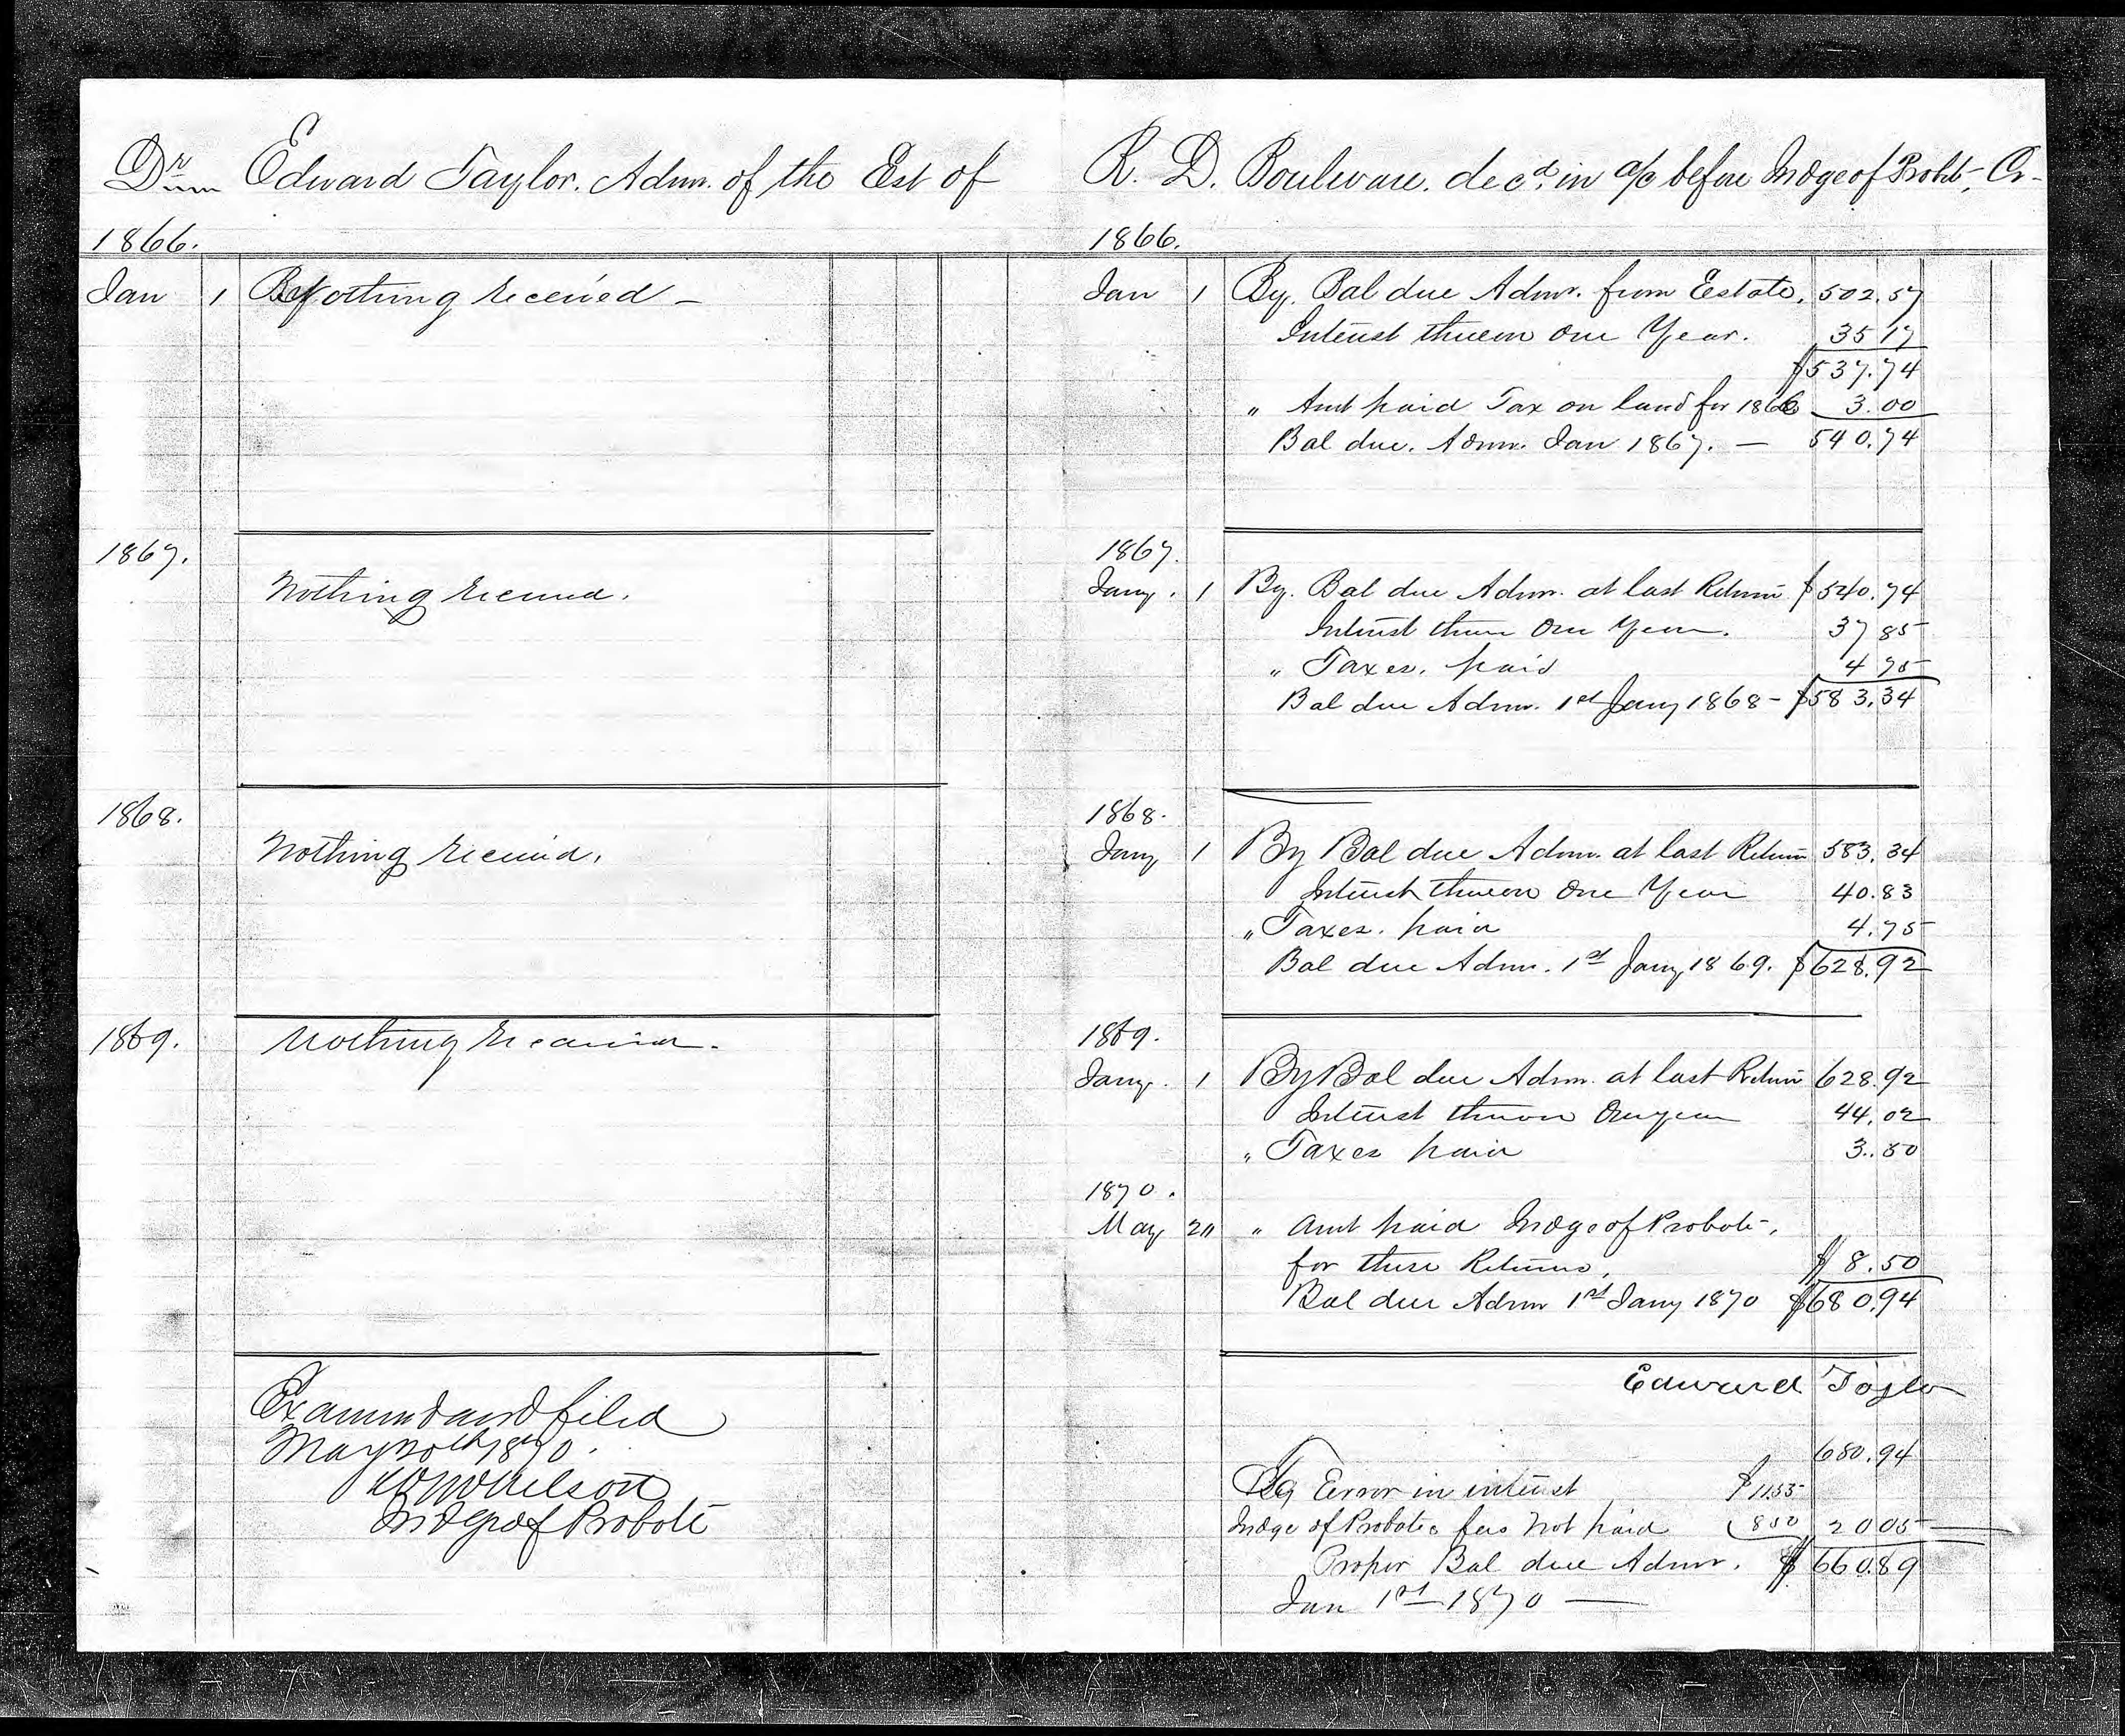 Dr Edward Taylor. Admr. of the Est of
1866.
Jan 1 Nothing received –
1867.
Nothing received.
1868.
Nothing received.
1869.
Nothing received.
Examined and filed
May 20th 1870.
Nelson
Judge of Probate
R. D. Boulware. decd. in a/c before Judge of Probt, Cr-
1866.
Jan 1 By. Bal due Admr. from Estate. 502.57
Interest thereon One Year. 35 17
$537.74
" Amt paid Tax on land for 1866 3.00
Bal due. Admr. Jan 1867. — 540.74
1867.
Jany. 1 By. Bal due Admr. at last Return $540.74
Interest thereon One Year. 37 85
" Taxes. paid 4 75
Bal due Admr. 1st Jany 1868 - $583.34
1868.
Jany 1 By Bal due Admr. at last Return 583.34
Interest thereon One Year 40.83
" Taxes. paid 4.75
Bal due Admr. 1st Jany 1869. $628.92
1869.
Jany. 1 By Bal due Admr. at last Return 628.92
Interest thereon One year 44.02
" Taxes paid 3.50
1870.
May 20 " Amt paid Judge of Probate,
for these Returns, $8.50
Bal due Admr 1st Jany 1870 $680.94
Edward Taylor
680.94
Error in interest $11.55
Judge of Probates fees not paid 8 50 20 05
Proper Bal due Admr. $660.89
Jan 1st 1870 —